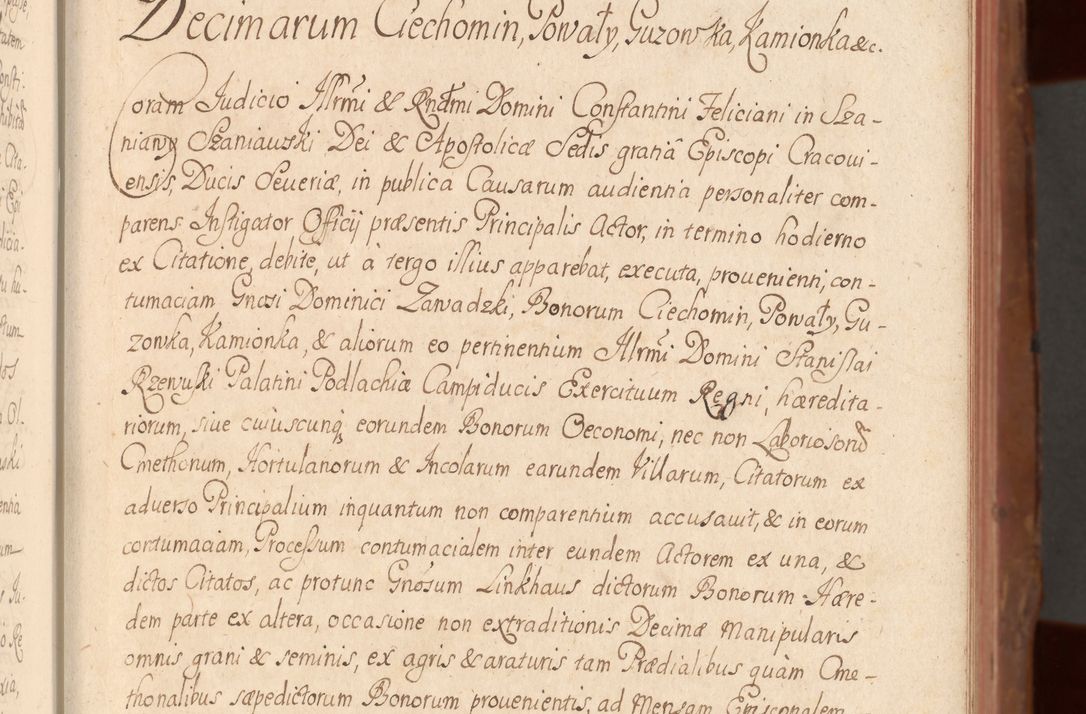 Decimarum Ciechomin, Powały, Guzowka, Kamionka &c.
Coram Judicio Illrmi & Rndmi Domini Constantini Feliciani in Sza-
niawy Szaniawski Dei & Apostolicæ Sedis gratiâ Episcopi Cracovi-
ensis, Ducis Severiæ, in publica Causarum audientia personaliter com-
parens Instigator Officij præsentis Principalis Actor, in termino hodierno
ex Citatione, debite, ut à tergo illius apparebat, executa, provenienti, con-
tumaciam Gnosi Dominici Zawadzki, Bonorum Ciechomin, Powały, Gu-
zowka, Kamionka, & aliorum eo pertinentium Illrmi Domini Stanislai
Rzewuski Palatini Podlachiæ Campiducis Exercituum Regni, hæredita-
riorum, sive cuiuscunq; eorundem Bonorum Oeconomi, nec non Laboriosorũ
Cmethonum, Hortulanorum & Incolarum earundem Villarum, Citatorum ex
adverso Principalium inquantum non comparentium accusavit, & in eorum
contumaciam, Processum contumacialem inter eundem Actorem ex una, &
dictos Citatos, ac protunc Gnosum Linkhaus dictorum Bonorum Hære-
dem parte ex altera, occasione non extraditionis Decimæ Manipularis
omnis grani & seminis, ex agris & araturis tam Prædialibus quàm Cme-
thonalibus sæpedictorum Bonorum provenientis, ad Mensam Episcopalem